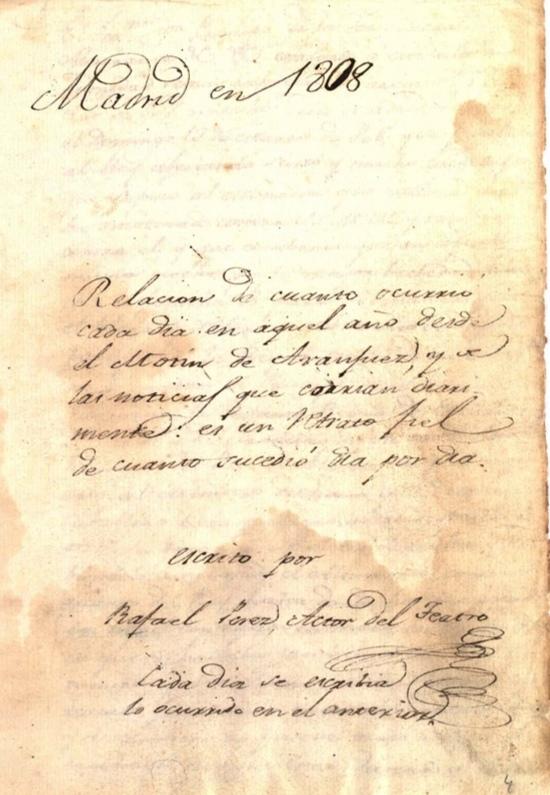 Madrid en 1808
Relacion de cuanto ocurrió
cada dia en aquel año desde
el Motin de Aranjuez, y de
las noticias que corrian diari
mente: es un retrato fiel
de cuanto sucedió dia por dia.
escrito por
Rafael Perez, Actor del Teatro
Cada dia se escribia
lo ocurrido en el anterior.
4